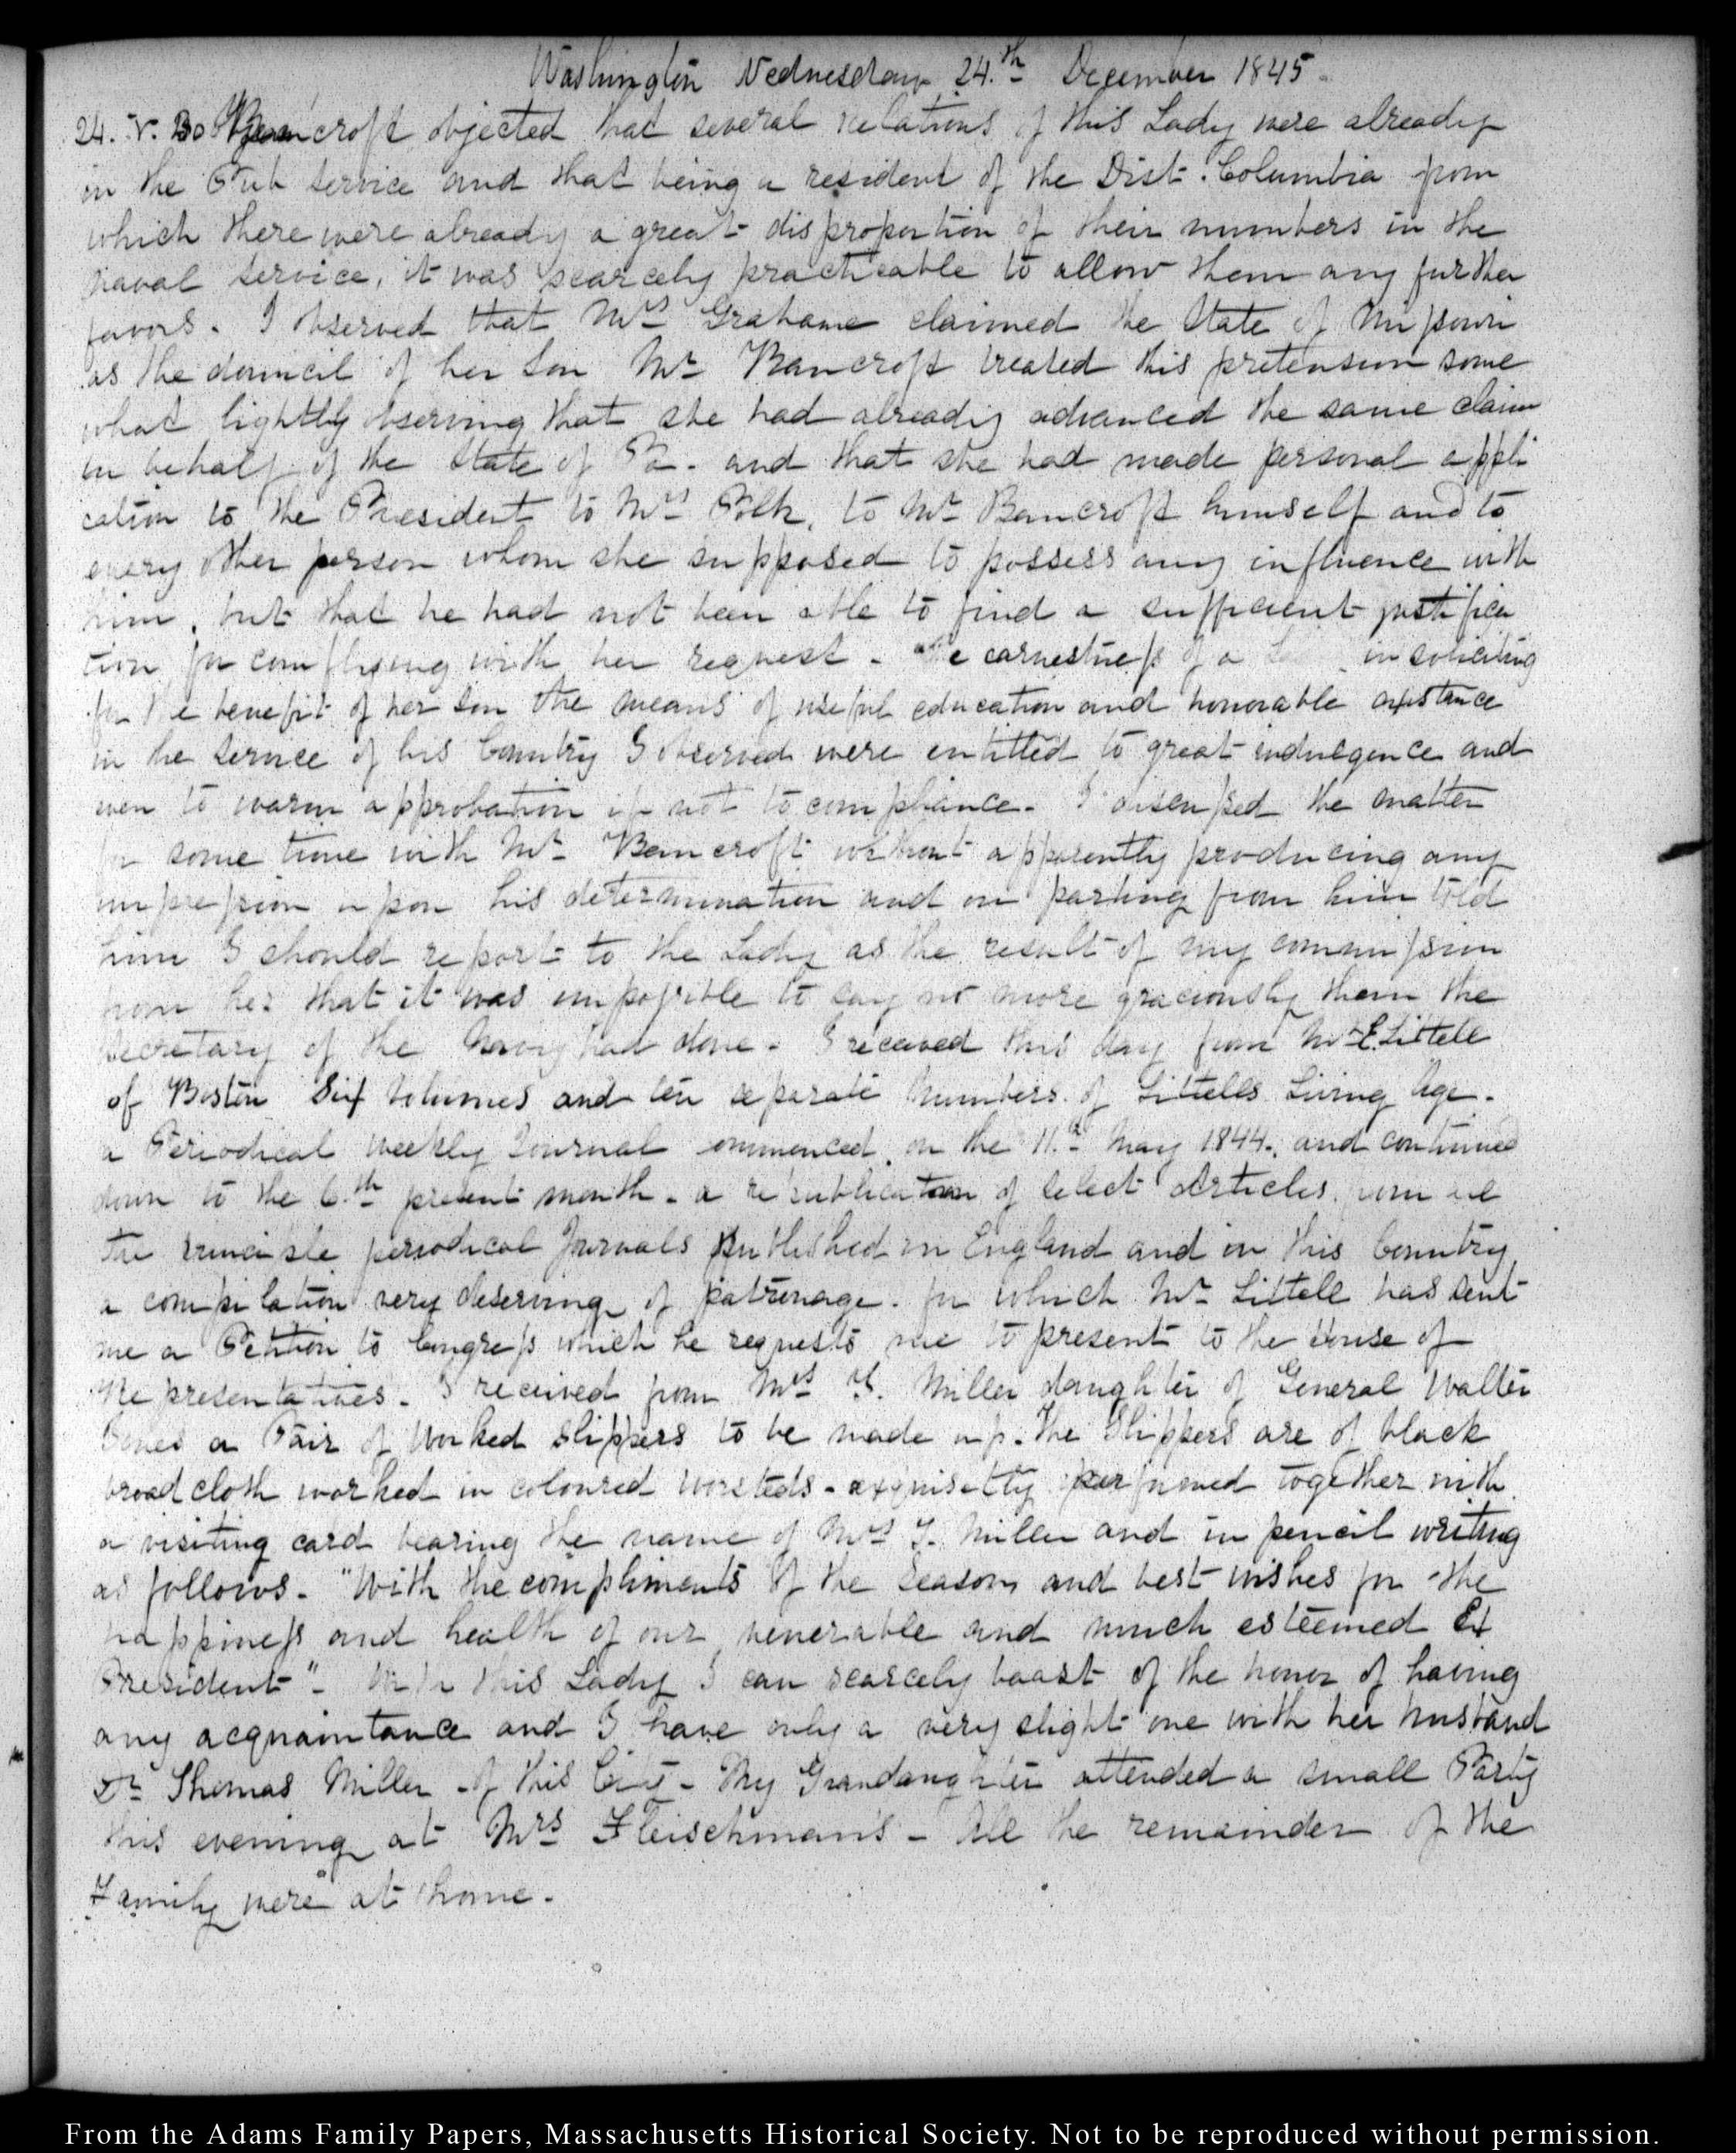 Washington Wednesday 24.th December 1845.
24. V. Bancroft objected that several relations of this Lady were already
in the Pub service and that being a resident of the Dist. Columbia from
which there were already a great disproportion of their numbers in the
naval service, it was scarcely practicable to allow them any further
favors. I observed that Mrs Grahame claimed the State of Missouri
as the domicil of her Son Mr Bancroft treated this pretension some
what lightly observing that she had already advanced the same claim
in behalf of the State of Pa. and that she had made personal appli
cation to the President to Mrs Polk, to Mr Bancroft himself and to
every other person whom she supposed to possess any influence with
him, but that he had not been able to find a sufficient justifica
tion for complying with her request. The earnestness of a Lady in soliciting
for the benefit of her Son the means of useful education and honorable assistance
in the service of his Country I observed were entitled to great indulgence and
even to warm approbation if not to compliance. I discussed the matter
for some time with Mr Bancroft without apparently producing any
impression upon his determination and on parting from him told
him I should report to the Lady as the result of my commission
from her that it was impossible to say no more graciously than the
Secretary of the Navy had done. I received this day from Mr E. Littell
of Boston Six Volumes and ten separate Numbers of Littells Living Age.
a Periodical weekly Journal commenced on the 11.th May 1844. and continued
down to the 6.th present month. a republication of select Articles from all
the principle periodical Journals published in England and in this Country
a compilation very deserving of patronage. for which Mr Littell has sent
me a Petition to Congress which he requests me to present to the House of
Representatives. I received from Mrs T. Miller daughter of General Walter
Jones a Pair of Worked Slippers to be made up. The Slippers are of black
broad cloth worked in coloured worsteds - exquisitly perfumed together with
a visiting card bearing the name of Mrs T. Miller and in pencil writing
as follows. "With the compliments of the Season, and best wishes for the
happiness and health of our venerable and much esteemed Ex
President". With this Lady I can scarcely boast of the honor of having
any acquaintance and I have only a very slight one with her husband
Dr Thomas Miller of this City - My Grandaughter attended a small Party
this evening at Mrs Fleischman's - All the remainder of the
Family were at home.
From the Adams Family Papers, Massachusetts Historical Society. Not to be reproduced without permission.